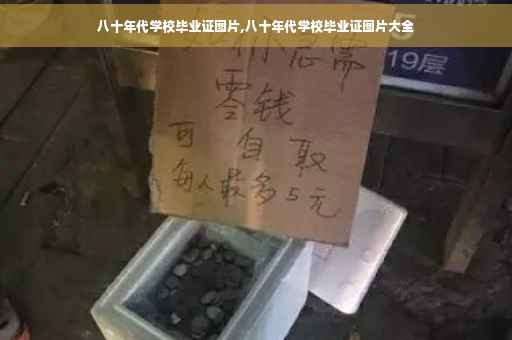 八十年代学校毕业证图片,八十年代学校毕业证图片大全
你急需
零钱
可自取
每人最多5元
5
19层